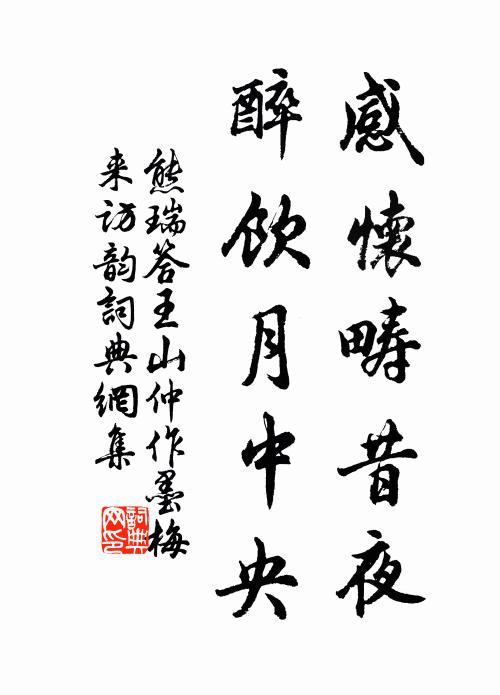 感懷疇昔夜
醉飲月中央
熊瑞答王山仲作墨梅
来访韵詞典網集
詞典网印